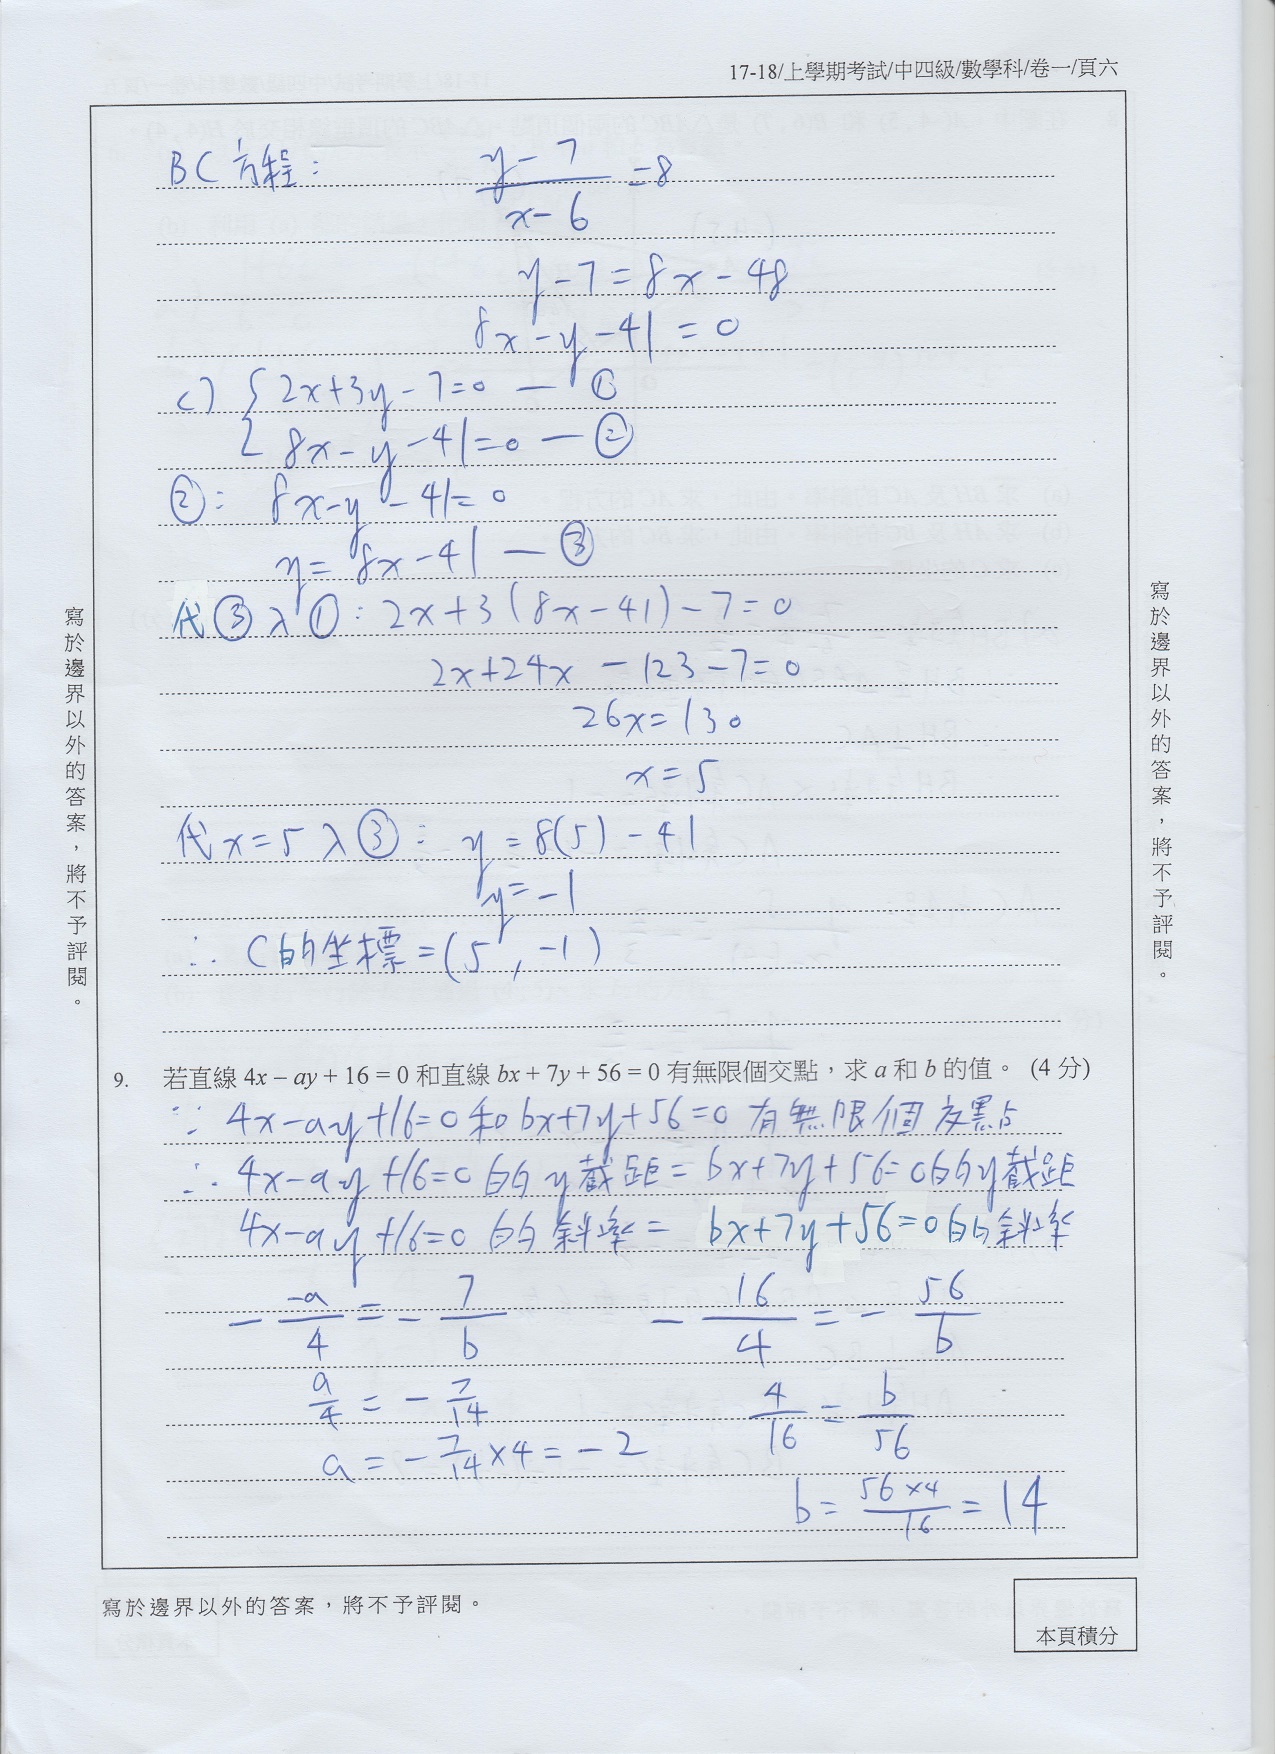 17-18/上學期考試/中四級/數學科/卷一/頁六
BC方程： (y-7)/(x-6) =8
y-7=8x-48
8x-y-41=0
c) { 2x+3y-7=0 — ①
8x-y-41=0 — ②
②： 8x-y-41=0
y=8x-41 — ③
代③入①：2x+3(8x-41)-7=0
2x+24x-123-7=0
26x=130
x=5
代x=5入③：y=8(5)-41
y=-1
∴ C的坐標=(5,-1)
寫於邊界以外的答案，將不予評閱。
寫於邊界以外的答案，將不予評閱。
9. 若直線 4x – ay + 16 = 0 和直線 bx + 7y + 56 = 0 有無限個交點，求 a 和 b 的值。 (4 分)
∵ 4x-ay+16=0和bx+7y+56=0有無限個交點
∴ 4x-ay+16=0的y截距=bx+7y+56=0的y截距
4x-ay+16=0的斜率= bx+7y+56=0的斜率
- -a/4 = - 7/b - 16/4 = - 56/b
a/4 = - 7/14 4/16 = b/56
a = - 7/14 ×4 = -2
b = 56×4/16 = 14
寫於邊界以外的答案，將不予評閱。
本頁積分